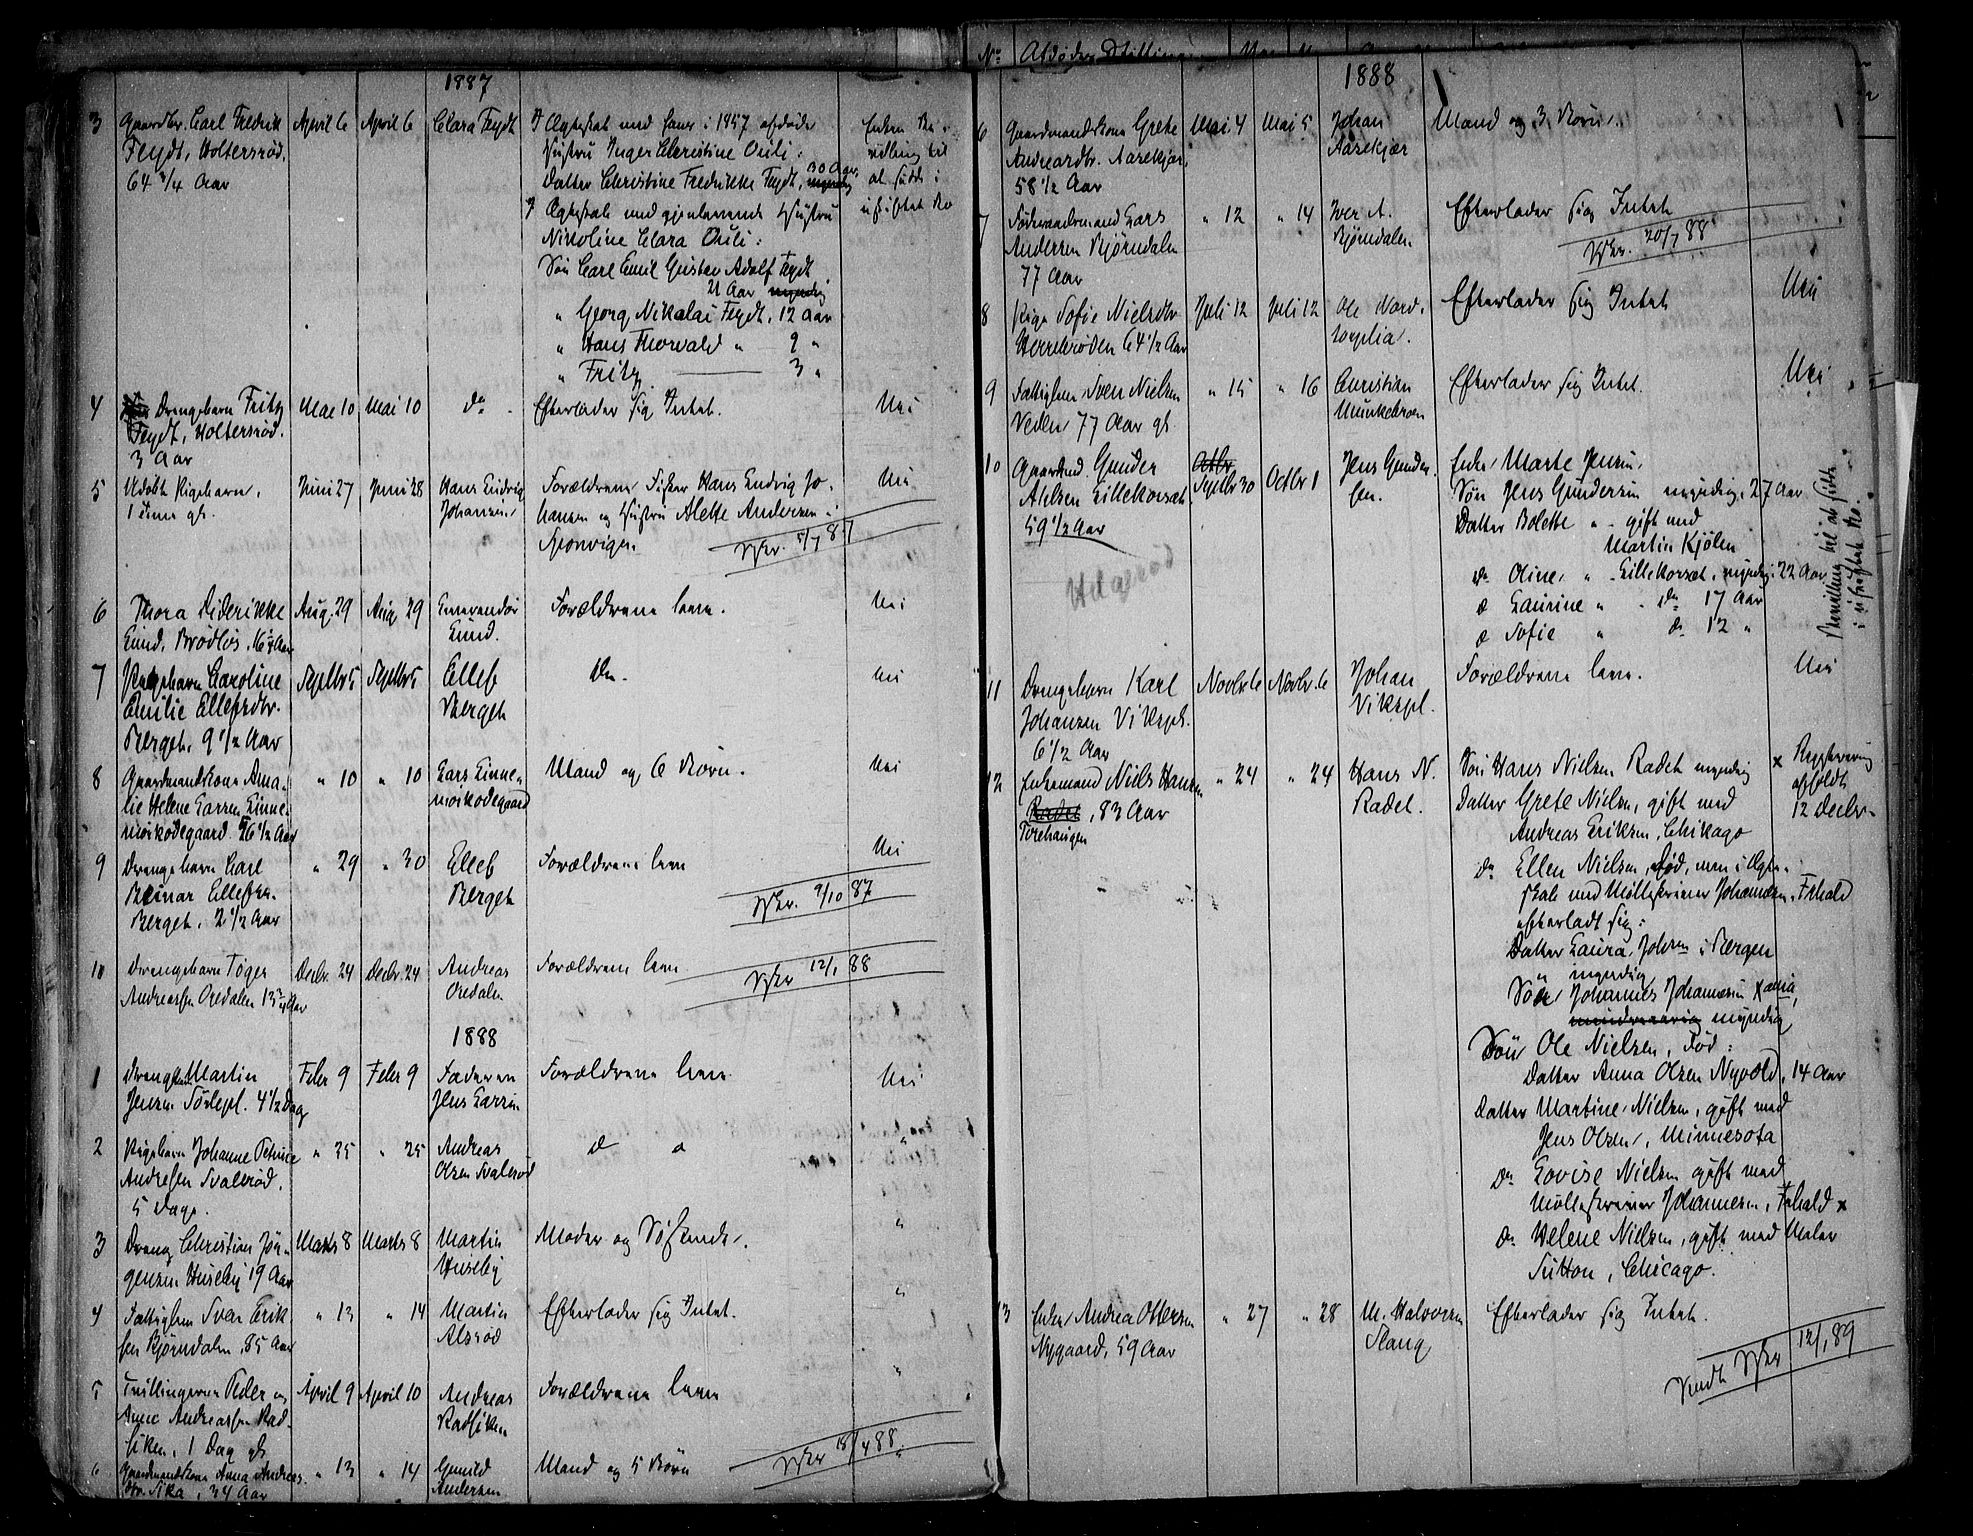 1887
3 Gaardbr. Carl Fredrik April 6 April 6 Clara Feydt I Ægteskab med hans i 1857 afdøde Enken Be-
Feydt, Holtersrød. Hustru Inger Christine Ouli: villing til
64 3/4 Aar Datter Christine Fredrikke Feydt, 30 Aar, myndig at sidde i
I Ægteskab med gjenlevende Hustru uskiftet Bo
Nikoline Clara Ouli:
Søn Carl Emil Gustav Adolf Feydt
21 Aar myndig
" Georg Nikolai Feydt, 12 Aar
" Hans Thorvald " 9 "
" Fritz 3 "
4 Drengebarn Fritz Mai 10 Mai 10 do Efterlader sig Intet. Nei
Feydt, Holtersrød.
3 Aar
5 Udøbt Pigebarn, Juni 27 Juni 28 Hans Ludvig Forældrene, Fisker Hans Ludvig Jo- Nei
1 Time gl. Johansen, hansen og Hustru Alette Andersen i
Sponvigen. 5/7 87
6 Thora Diderikke Aug. 29 Aug. 29 Lund. Forældrene leve. Nei
Lund, Brødløs, 16 Aar
7 Pigebarn Caroline Septbr 5 Septbr 5 Ellef Do. Nei
Emilie Ellefsdbr. Berget
Berget, 9 1/2 Aar
8 Gaardmandskone Ama- " 10 " 10 Lars Linne- Mand og 6 Børn. Nei
lie Helene Larsen Linne- møikodegaard
møikodegaard 56 1/2 Aar
9 Drengebarn Carl " 29 " 30 Ellef Forældrene leve Nei
Reinar Ellefsen Berget
Berget, 2 1/2 Aar 9/10 87
10 Drengebarn Tøger Decbr. 24 Decbr. 24 Andreas Forældrene leve 12/1 88
Andreassen Oredalen 13 Aar Oredalen
1888
1 Martin Febr 9 Febr 9 Faderen Forældrene leve. Nei
Jensen 4 1/2 Dag Jens Larsen
2 Pigebarn Johanne Petrine " 25 " 25 Andreas d o "
Andresen Svalerød. Olsen Svalerød
5 Dage.
3 Dreng Christian Jør- Marts 8 Marts 8 Martin Moder og Søskende. "
gensen Huseby 19 Aar Huseby
4 Fattiglem Svar Erik- " 13 " 14 Martin Efterlader sig Intet. "
sen Bjørndalen, 85 Aar Alsrød
5 Tvillingerne Peder og April 9 April 10 Andreas Forældrene leve "
Anne Andreassen Rad- Radsiken
siken, 1 Dag gl. 18/4 88
6 Gaardmandskone Anna Andreas- " 13 " 14 Gunild Mand og 5 Børn "
dtr. Sika, 34 Aar Andersen
No Afdødes Stilling
1888
6 Gaardmandskone Grete Mai 4 Mai 5 Johan Mand og 3 Børn
Andreasdtr. Aasekjær, Aasekjær
58 1/2 Aar
7 Føderaadsmand Lars " 12 " 14 Iver A. Efterlader sig Intet
Andersen Bjørndalen Bjørndalen 20/7 88
77 Aar
8 Pige Sofie Nielsdtr Juli 12 Juli 12 Ole Nord- Efterlader sig Intet Nei
Herrebrøden 64 1/2 Aar
9 Fattiglem Sven Nielsen " 15 " 16 Christian Efterlader sig Intet. Nei
Veden 77 Aar gl. Munkebroen
10 Gaardmd. Gunder Octbr Septbr 30 Octbr 1 Jens Gunder- Enke Marte Jensen,
Nielsen Lillekorsæt sen. Søn Jens Gundersen myndig, 27 Aar
59 1/2 Aar Datter Bolette " gift med
Martin Kjølen
do Oline " Lillekorsæt, myndig, 22 Aar,
d Laurine " do 17 Aar
d Sofie " do 12 "
Bevilling til at sidde
i uskiftet Bo.
11 Drengebarn Karl Novbr 6 Novbr. 6 Johan Forældrene leve. Nei
Johansen Vikspl. Vikspl.
6 1/2 Aar
12 Enkemand Niels Hansen " 24 " 24 Hans N. Søn Hans Nielsen Radet myndig x Registrering
Radet, 83 Aar Radet. Datter Grete Nielsen, gift med afholdt
Torehaugen Andreas Eriksen, Chikago 12 Decbr.
do Ellen Nielsen, død, men i Ægte-
skab med Møllesvenner Johannesen, Frhald
efterladt sig:
Datter Laura Johsn i Bergen
" myndig
Søn Johannes Johannesen Xania,
myndig
Søn Ole Nielsen, død:
Datter Anna Olsen Nyvold, 14 Aar
Datter Martine Nielsen, gift med
Jens Olsen, Minnesota
do Lovise Nielsen gift med
Johannesen, Frhald x
do Helene Nielsen, gift med Maler
Sutton, Chicago.
13 Enke Andrea Olsen " 27 " 28 M. Halvorsen Efterlader sig Intet.
Nygaard, 59 Aar Stang
12/1 89